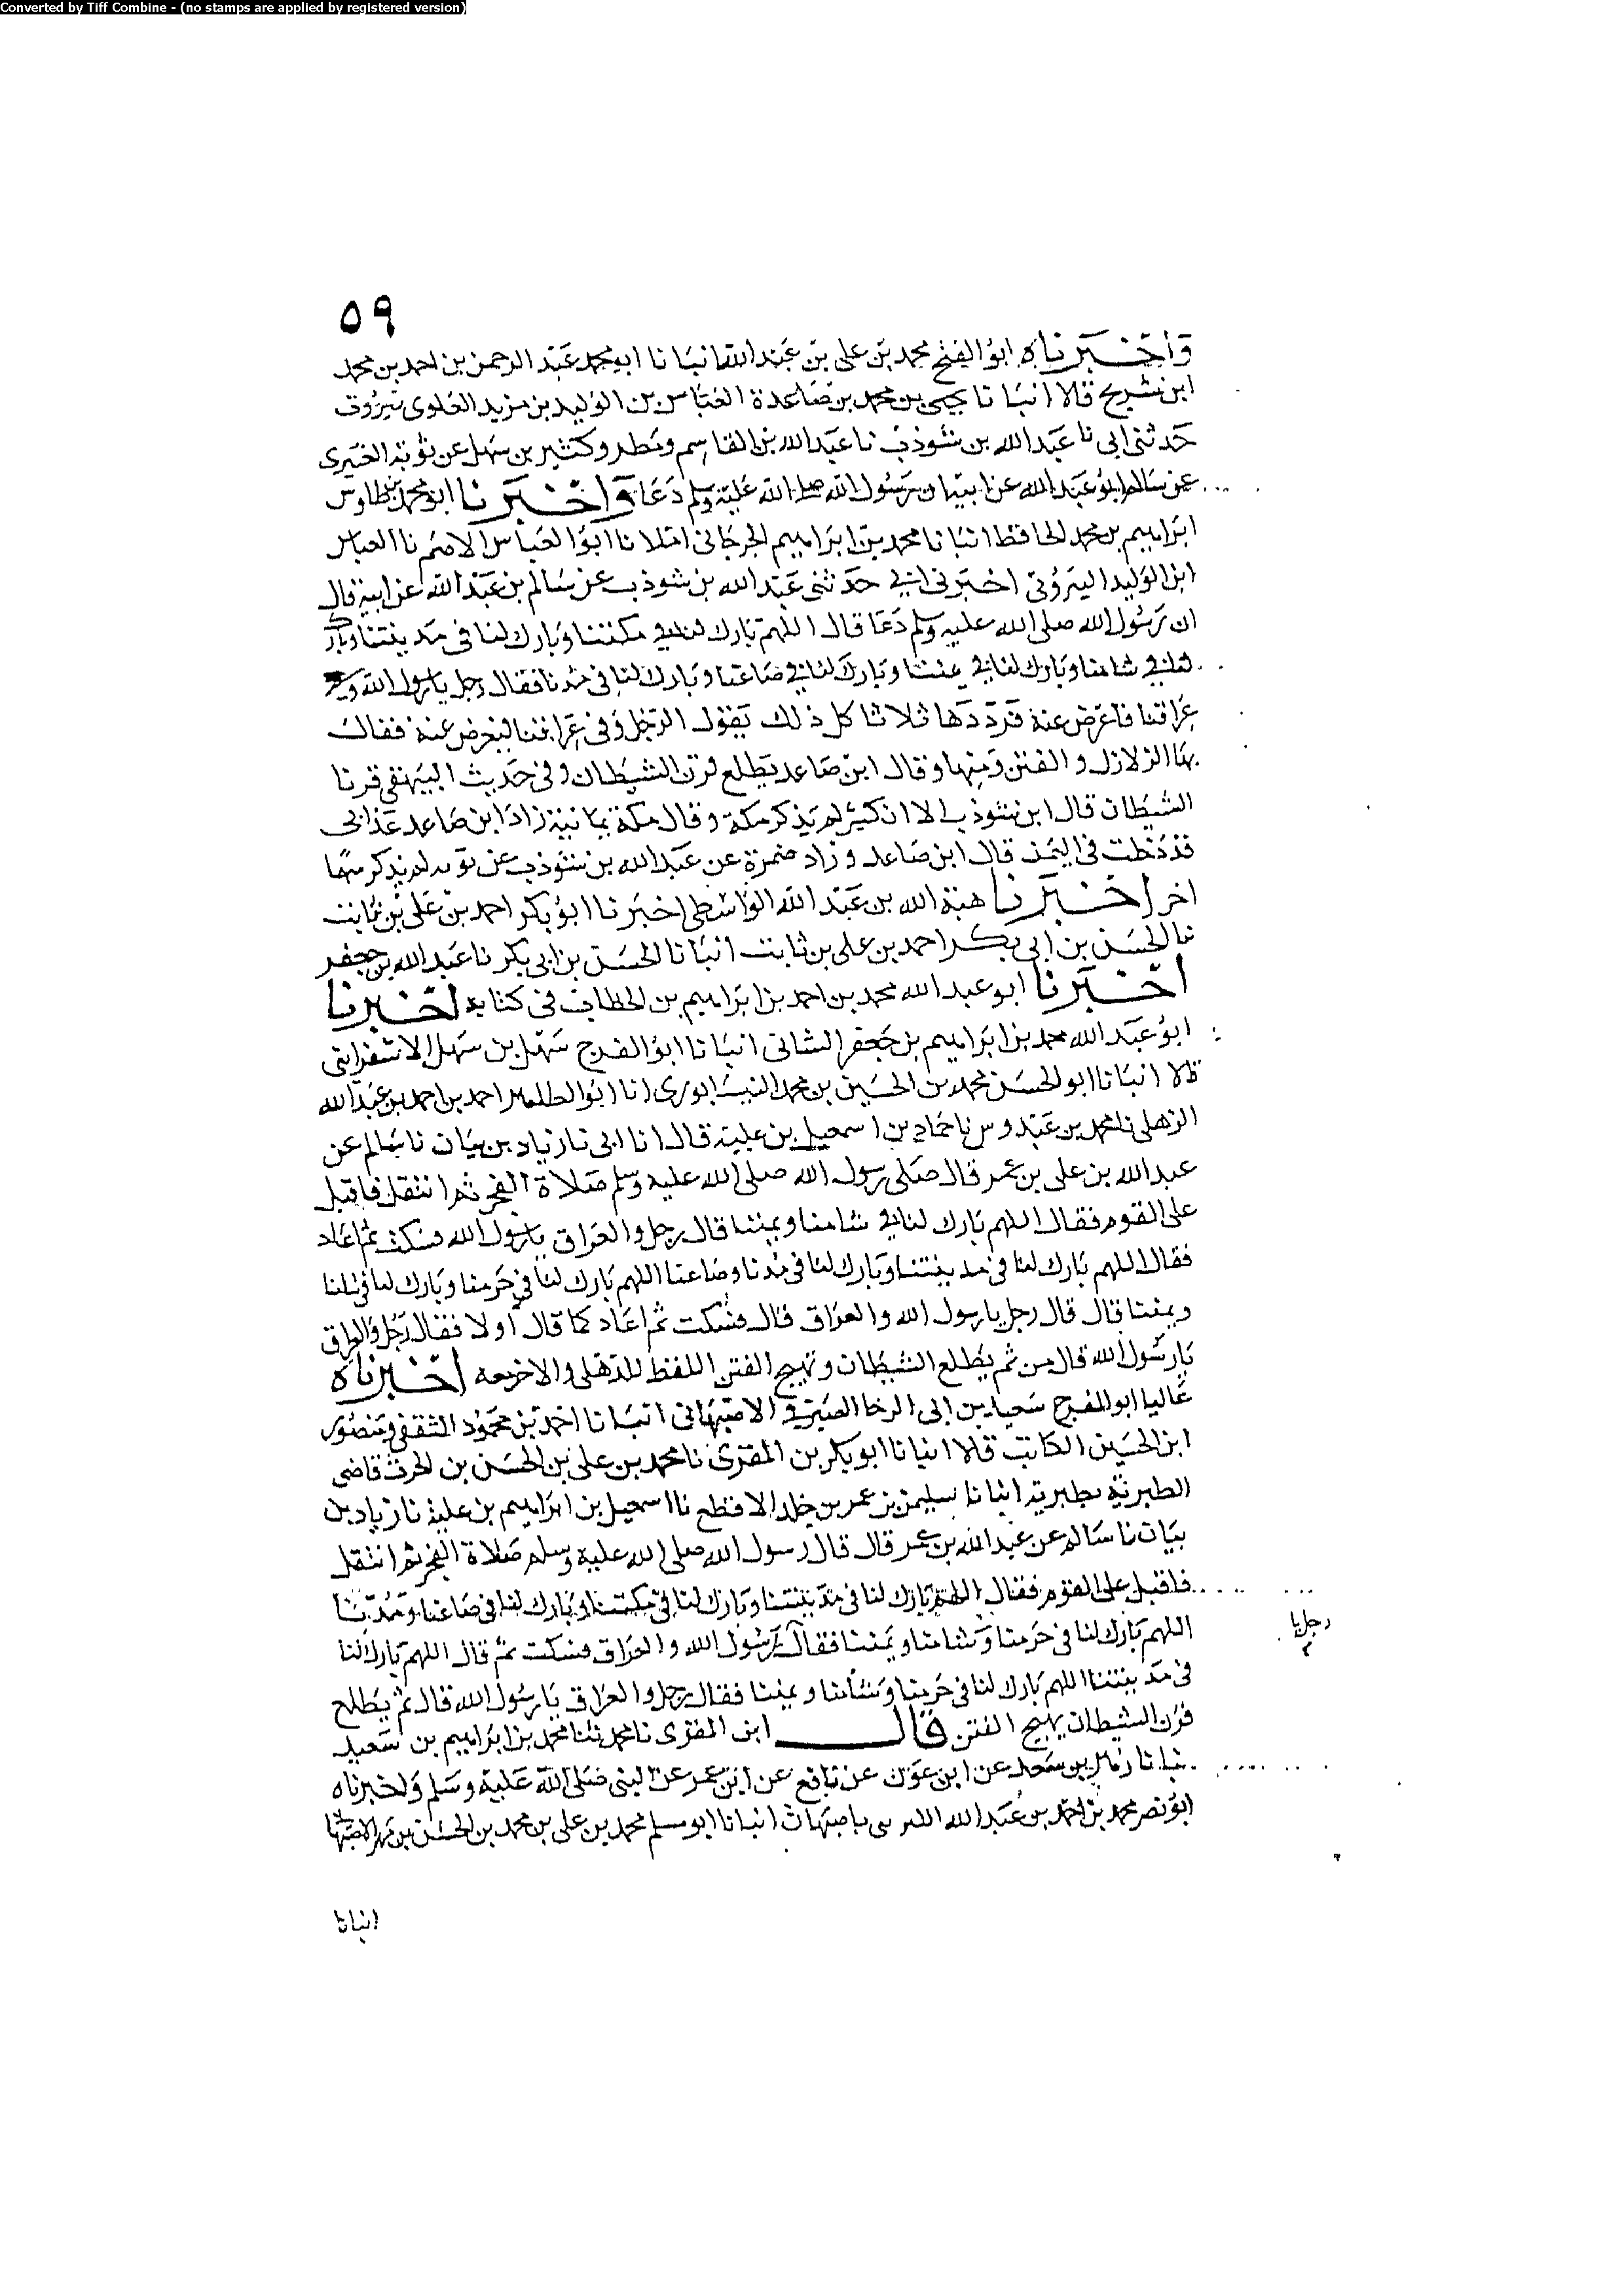 Converted by Tiff Combine - (no stamps are applied by registered version)
٥٩
وأخبرناه ابو الفتح محمد بن على بن عبد الله انبانا ابو محمد عبد الرحمن بن احمد بن محمد
ابن شريح قالا انبانا يحيى بن محمد بن صاعدة العباس بن الوليد بن مزيد العلوى بيروت
حدثنى ابى نا عبد الله بن شوذب نا عبد الله بن القاسم ومطر وكثير بن سهل عن توبة العنبرى
عن سالم ابو عبد الله عن ابيه ان رسول الله صلى الله عليه وسلم دعا وأخبرنا ابو محمد بن طاوس
ابراهيم بن محمد الحافظ انبانا محمد بن ابراهيم الجرجانى املانا ابو العباس الاصم نا العباس
ابن الوليد البيروتى اخبرنى ابى حدثنى عبد الله بن شوذب عن سالم بن عبد الله عن ابيه قال
ان رسول الله صلى الله عليه وسلم دعا قال اللهم بارك لنا فى مكتنا وبارك لنا فى مدينتنا وبارك
لنا فى شامنا وبارك لنا فى يمننا وبارك لنا فى صاعنا وبارك لنا فى مدنا فقال رجل يا رسول الله وفى
عراقنا فاعرض عنه فرددها ثلاثا كل ذلك يقول الرجل وفى عراقنا فيعرض عنه فقال
بها الزلازل والفتن ومنها وقال ابن صاعد يطلع قرن الشيطان وفى حديث البيهقى قرنا
الشيطان قال ابن شوذب الا ان كثير لم يذكر مكة وقال مكة يمانية زاد ابن صاعد عذابى
فدخلت فى اليمن قال ابن صاعد وزاد ضمرة عن عبد الله بن شوذب عن توبه لم يذكر منهما
اخر أخبرنا هبة الله بن عبد الله الواسطى اخبرنا ابو بكر احمد بن على بن ثابت
نا الحسن بن ابى بكر احمد بن على بن ثابت انبانا الحسن بن ابى بكر نا عبد الله بن جعفر
أخبرنا ابو عبد الله محمد بن احمد بن ابراهيم بن الحطاب فى كتابه أخبرنا
ابو عبد الله محمد بن ابراهيم بن جعفر النشائى انبانا ابو الفرج سهل بن سهل الاسفراينى
قالا انبانا ابو الحسن محمد بن الحسين بن محمد النيسابورى انا ابو الطاهر احمد بن احمد بن عبد الله
الذهلى نا محمد بن عبدوس نا حماد بن اسمعيل بن علية قال انا ابى نا زياد بن بيان نا سالم عن
عبد الله بن على بن عمر قال صلى رسول الله صلى الله عليه وسلم صلاة الفجر ثم انتقل فاقبل
على القوم فقال اللهم بارك لنا فى شامنا ويمننا قال رجل والعراق يا رسول الله فسكت ثم اعاد
فقال اللهم بارك لنا فى مدينتنا وبارك لنا فى مدنا وصاعنا اللهم بارك لنا فى حرمنا وبارك لنا فى شامنا
ويمننا قال قال رجل يا رسول الله والعراق قال فسكت ثم اعاد كما قال أولا فقال رجل والعراق
يا رسول الله قال من ثم يطلع الشيطان وتهيج الفتن اللفظ للذهلى والاخر معه أخبرناه
عاليا ابو المفرج سعيد بن ابى الرجا الصيرفى الاصبهانى انبانا احمد بن محمود الثقفى ومنصور
ابن الحسين الكاتب قالا انبانا ابو بكر بن المقرى نا محمد بن على بن الحسن بن الحرث قاضى
الطبرية بطبرية انبانا سليمن بن عمر بن خلد الاقطع نا اسمعيل بن ابراهيم بن علية نا زياد بن
بيان نا سالم عن عبد الله بن عمر قال قال رسول الله صلى الله عليه وسلم صلاة الفجر ثم انتقل
فاقبل على القوم فقال اللهم بارك لنا فى مدينتنا وبارك لنا فى مكتنا وبارك لنا فى صاعنا ومدنا
اللهم بارك لنا فى حرمنا وشامنا ويمننا فقال يا رسول الله والعراق فسكت ثم قال اللهم بارك لنا
رجل يا
فى مدينتنا اللهم بارك لنا فى حرمنا وشأمنا ويمننا فقال رجل والعراق يا رسول الله قال ثم يطلع
قرن الشيطان يهيج الفتن قال ابن المقرى نا محمد ثنا محمد بن ابراهيم بن سعيد
بن سعد عن ابن عون عن نافع عن ابن عمر عن النبى صلى الله عليه وسلم واخبرناه
ابو نصر محمد بن احمد بن عبد الله باصبهان انبانا ابو مسلم محمد بن على بن محمد بن الحسن بن مهر الاصبهانى
انبانا